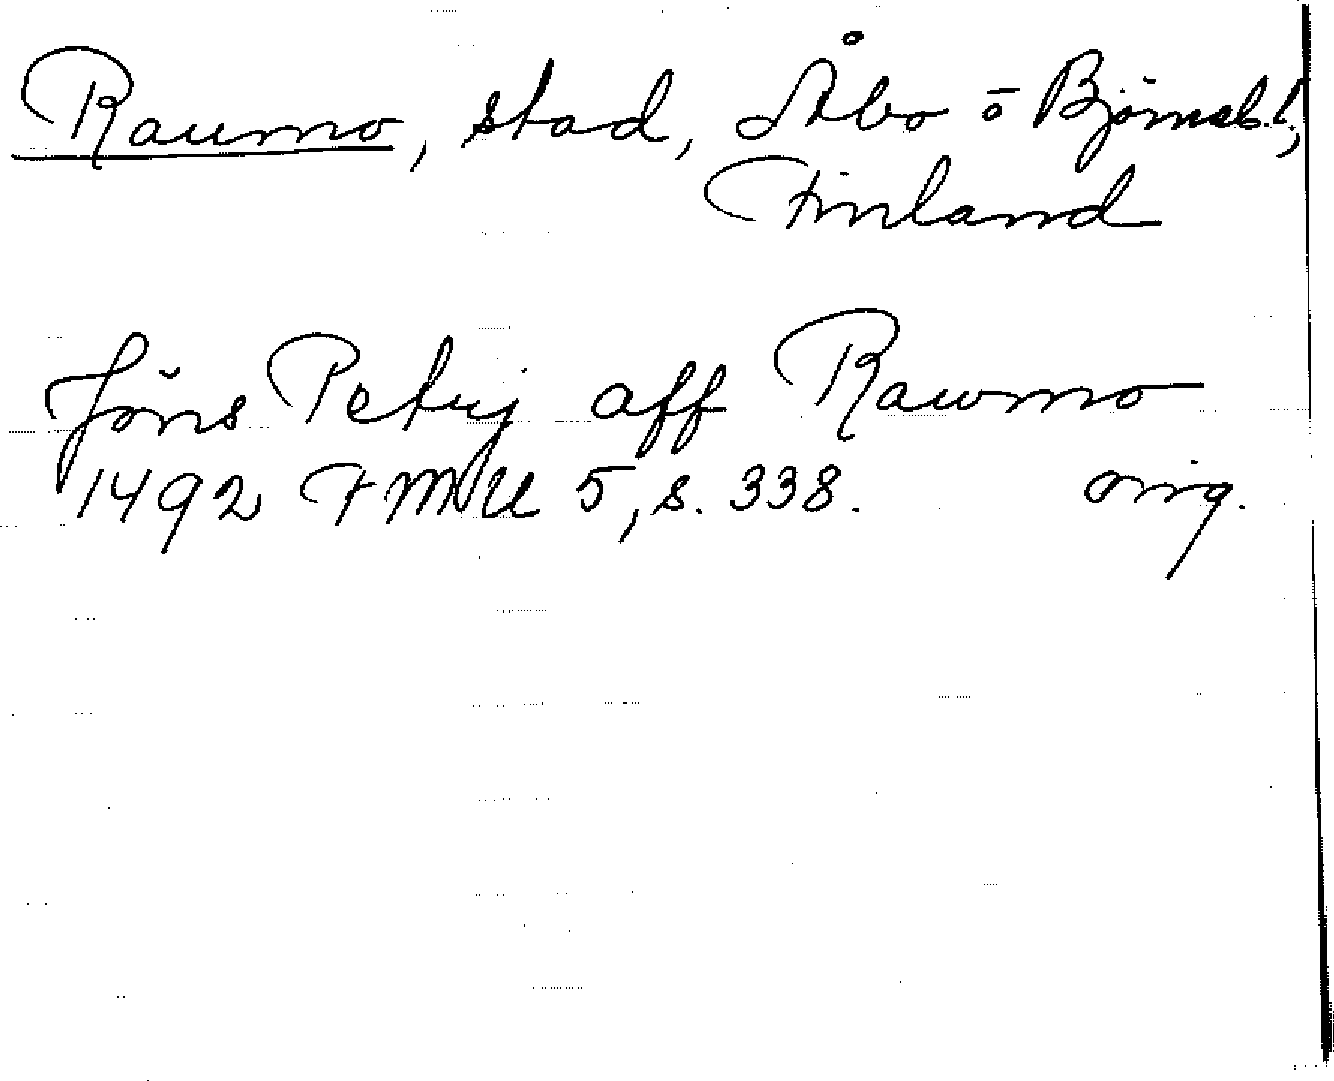 Raumo, stad, Åbo o Björneb. l.,
Finland
Jöns Petrij aff Rawmo
1492 FMU 5, s. 338. orig.